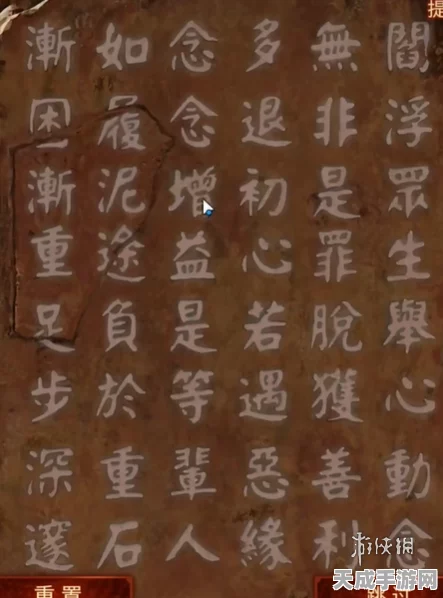 閻浮眾生舉心動念
無非是罪脫獲善利
多退初心若遇惡緣
念念增益是等輩人
如履泥途負於重石
漸困漸重足步深邃
提
重置
跳过
游侠网
天成手游网